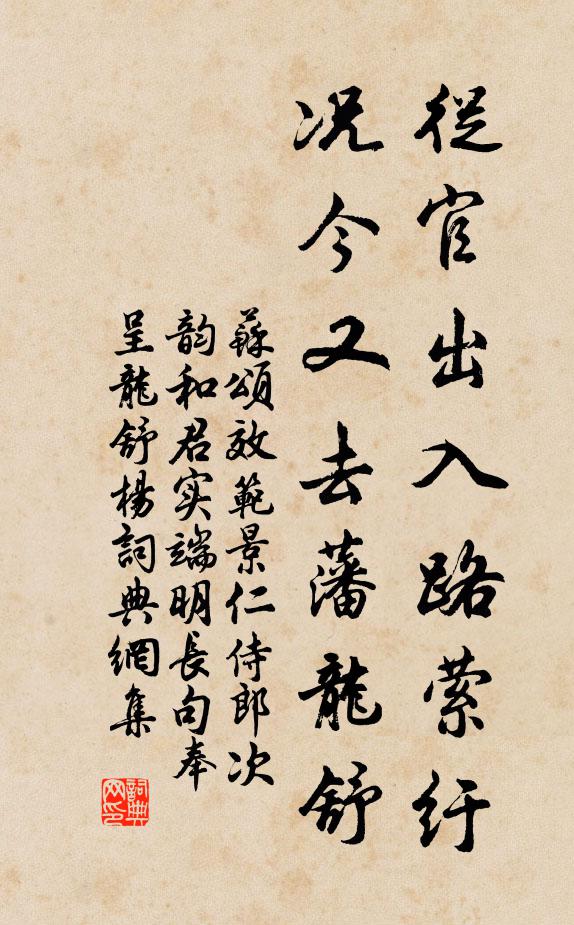 從官出入路萦紆
况今又去藩龍舒
蘇頌效範景仁侍郎次
韵和君实端明長句奉
呈龍舒楊詞典網集
詞典
网印